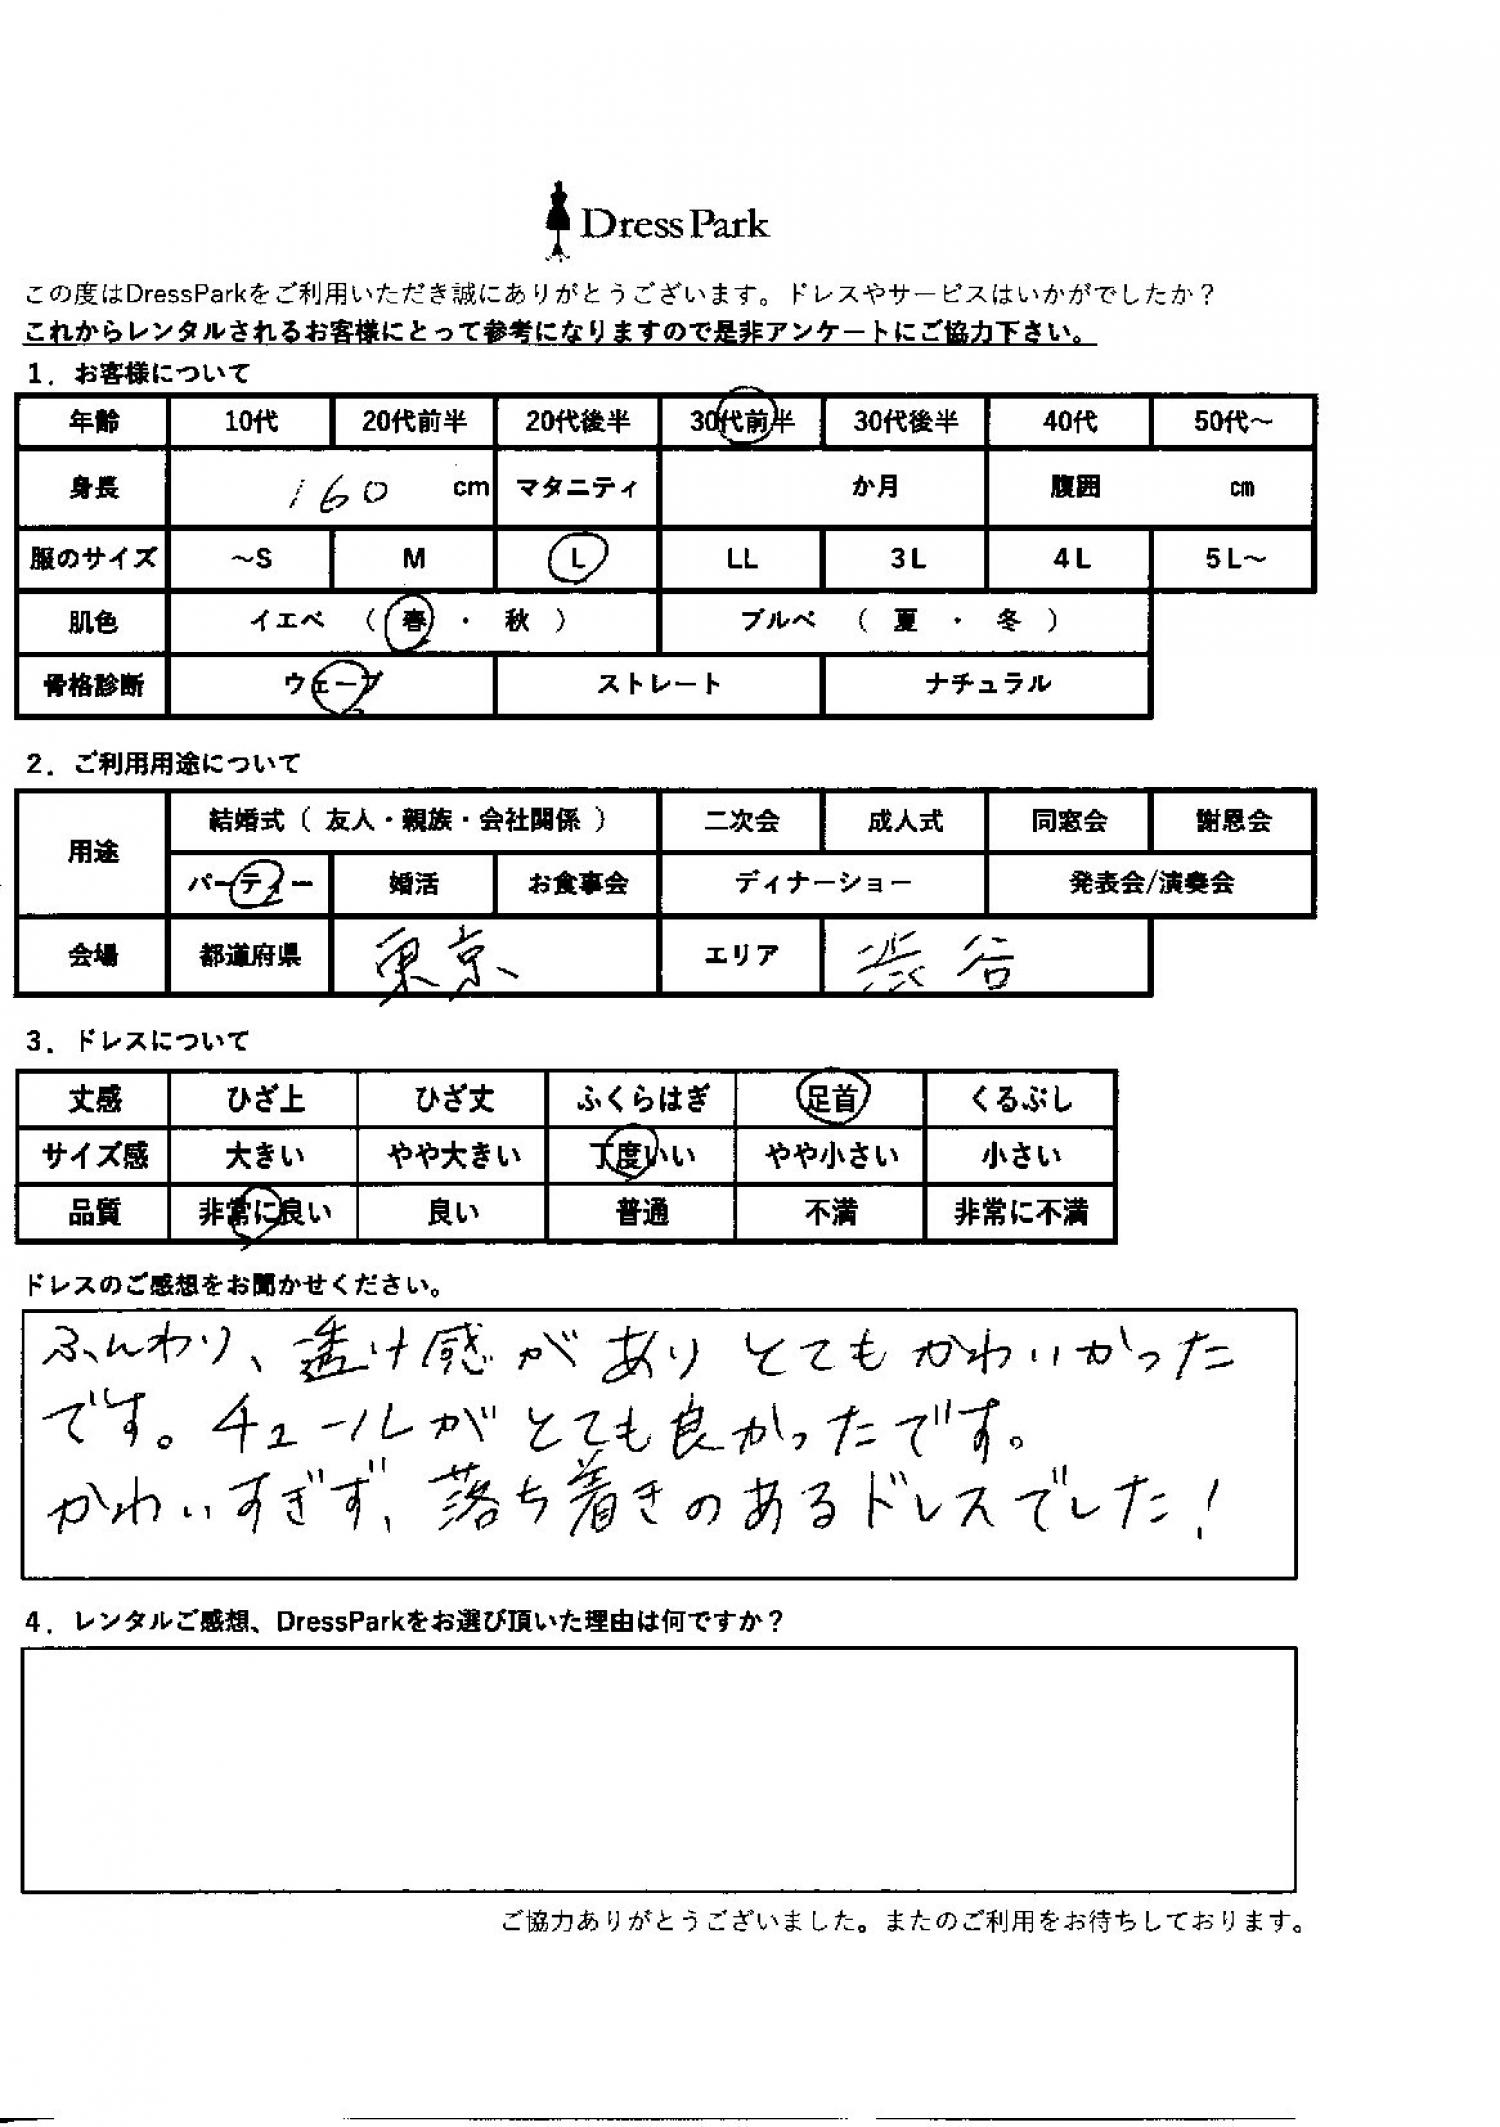 DressPark
この度はDressParkをご利用いただき誠にありがとうございます。ドレスやサービスはいかがでしたか？
これからレンタルされるお客様にとって参考になりますので是非アンケートにご協力下さい。
1．お客様について
年齢 10代 20代前半 20代後半 30代前半 30代後半 40代 50代～
身長 160 cm マタニティ か月 腹囲 cm
服のサイズ ～S M L LL 3L 4L 5L～
肌色 イエベ （ 春 ・ 秋 ） ブルベ （ 夏 ・ 冬 ）
骨格診断 ウェーブ ストレート ナチュラル
2．ご利用用途について
用途 結婚式（ 友人・親族・会社関係 ） 二次会 成人式 同窓会 謝恩会
パーティー 婚活 お食事会 ディナーショー 発表会/演奏会
会場 都道府県 東京 エリア 渋谷
3．ドレスについて
丈感 ひざ上 ひざ丈 ふくらはぎ 足首 くるぶし
サイズ感 大きい やや大きい 丁度いい やや小さい 小さい
品質 非常に良い 良い 普通 不満 非常に不満
ドレスのご感想をお聞かせください。
ふんわり、透け感がありとてもかわいかった
です。チュールがとても良かったです。
かわいすぎず、落ち着きのあるドレスでした！
4．レンタルご感想、DressParkをお選び頂いた理由は何ですか？
ご協力ありがとうございました。またのご利用をお待ちしております。